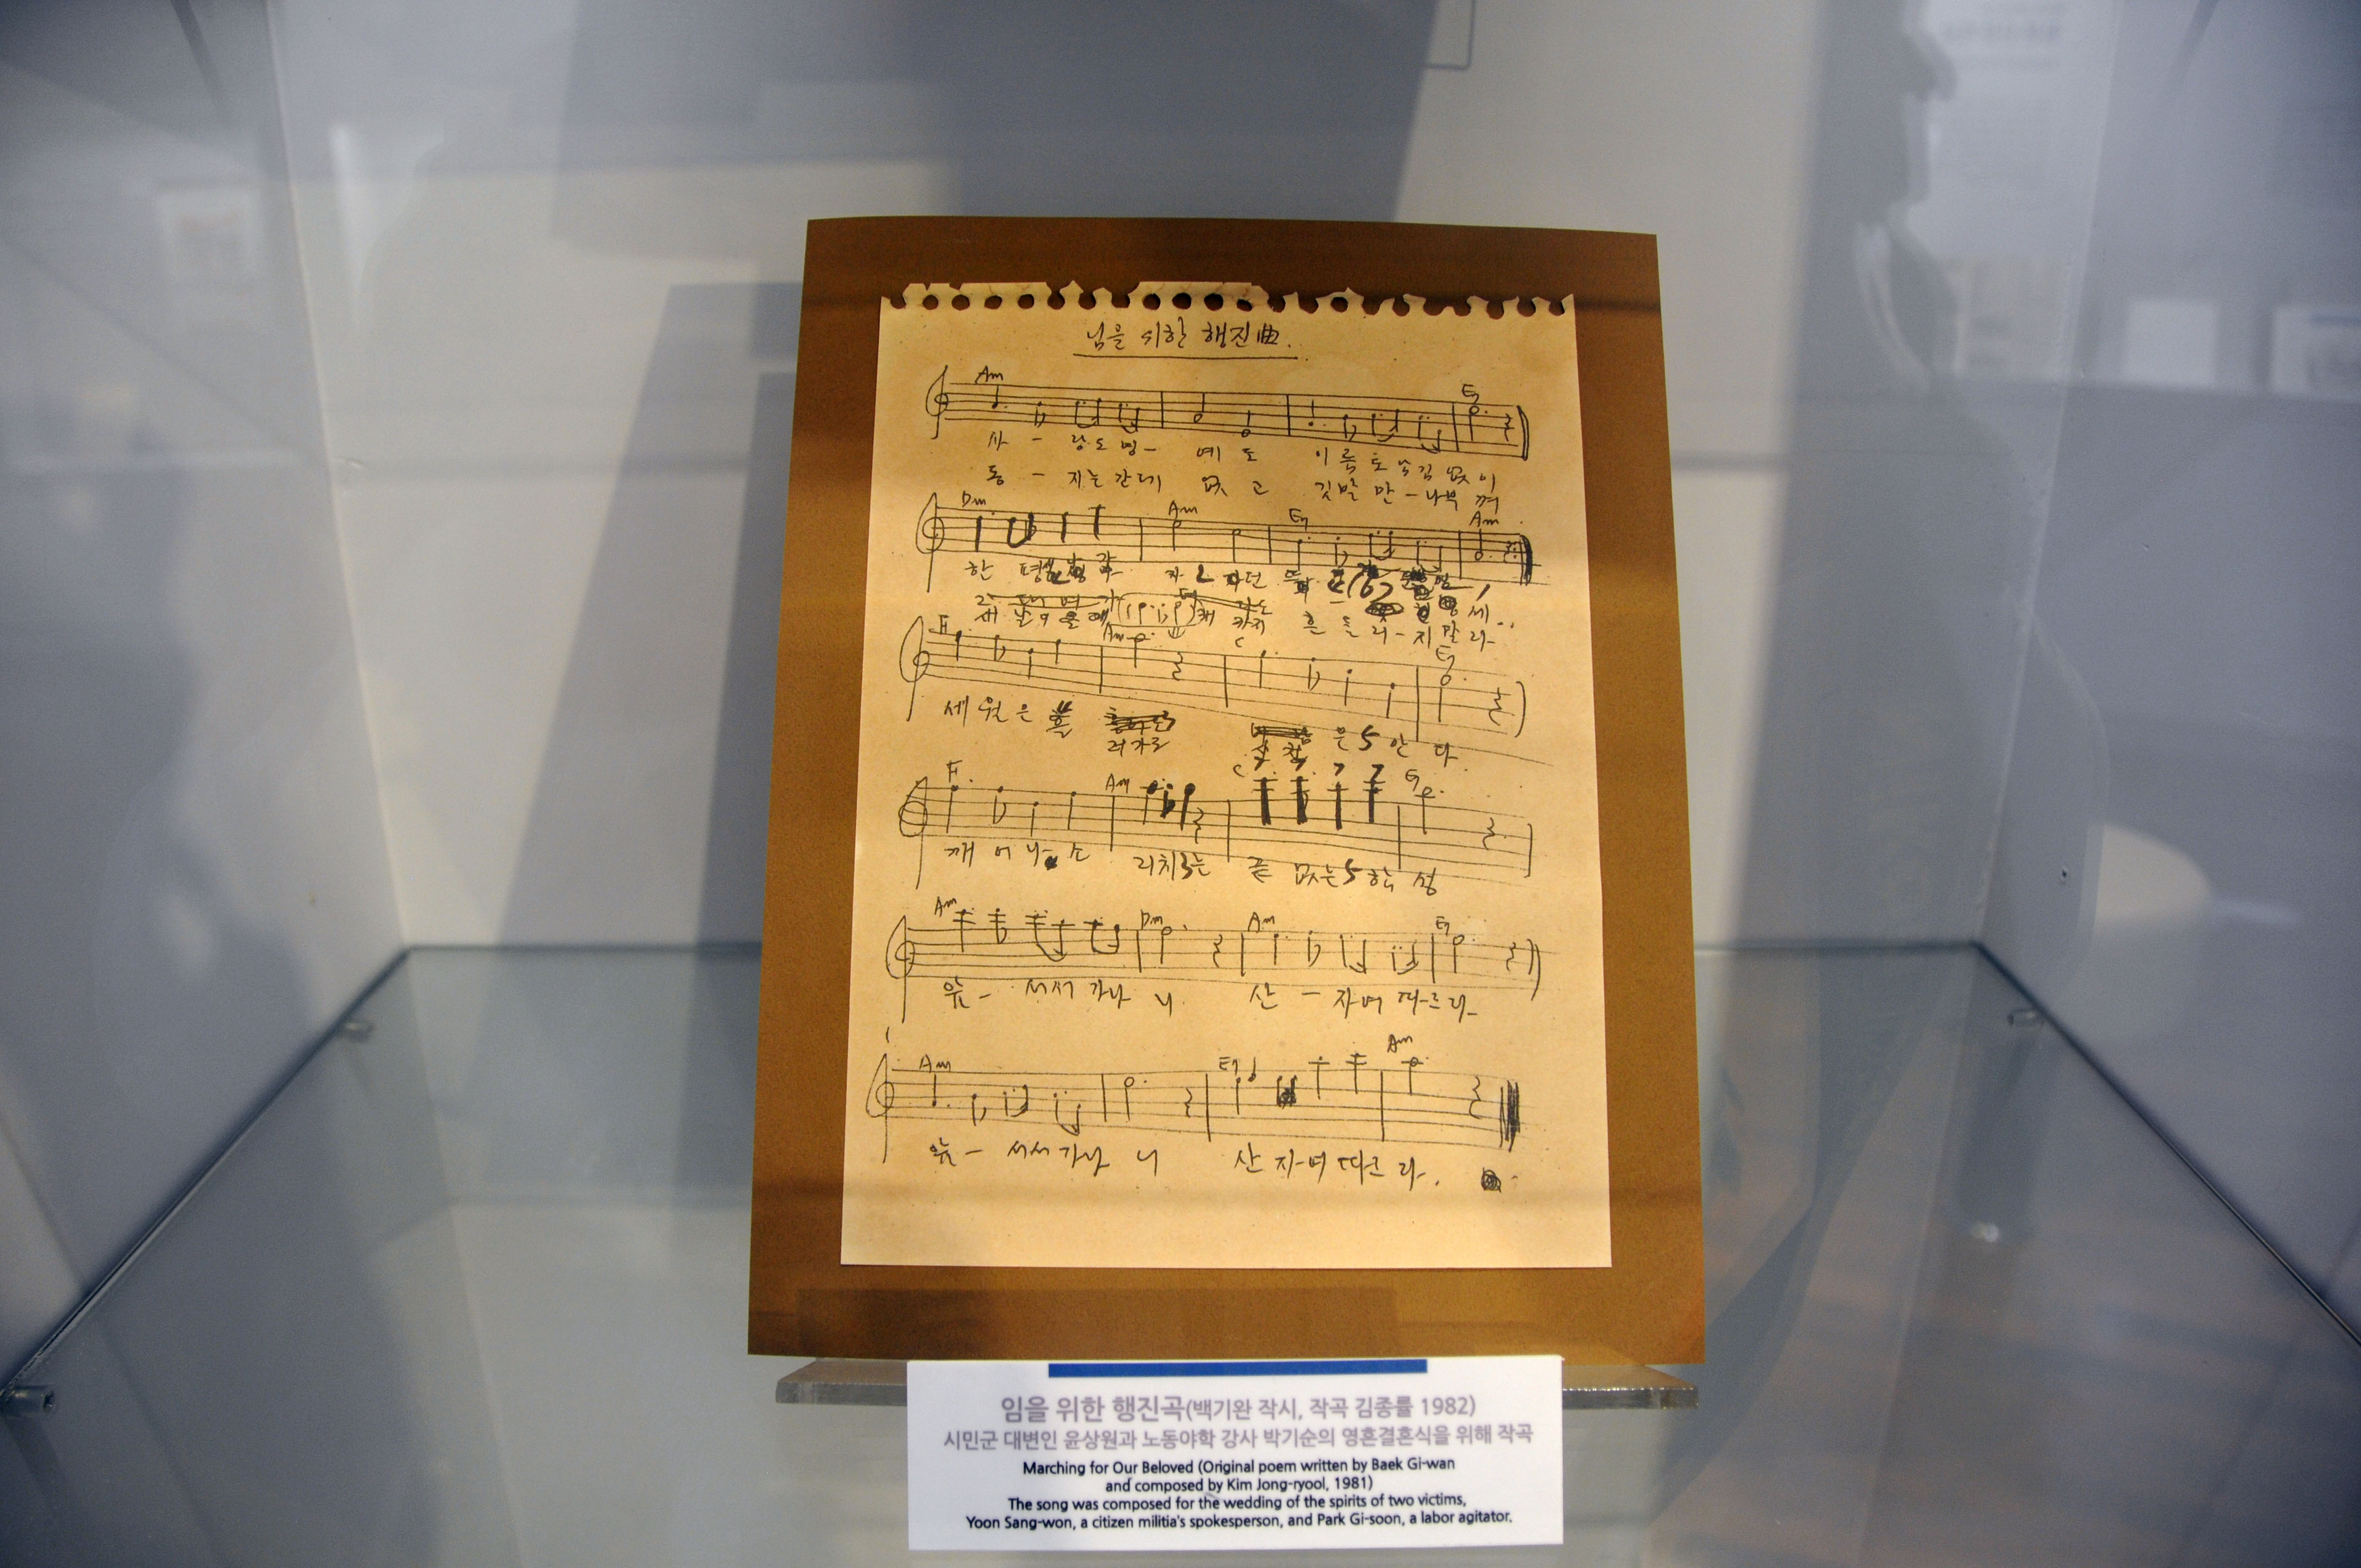 님을 위한 행진曲.
Am E7
사 - 랑도 명- 예 도 이 름 도 남김 없 이
동 - 지는 간데 없 고 깃발 만 - 나부 껴
Dm Am E7 Am
한 평
새 날 이 올 때 까지 흔 들 리 - 지 말 라-
F Am C E7
세 월 은 흘 러가도
산 천 은 안 다.
F Am C G
깨 어 나 소 리치는 끝 없는 함 성
Am Dm Am E7
앞 - 서서 가나 니 산 - 자여 따르라-
Am E7 Am
앞 - 서서 가나 니 산 자-여 따르 라.
임을 위한 행진곡(백기완 작시, 작곡 김종률 1982)
시민군 대변인 윤상원과 노동야학 강사 박기순의 영혼결혼식을 위해 작곡
Marching for Our Beloved (Original poem written by Baek Gi-wan
and composed by Kim Jong-ryool, 1981)
The song was composed for the wedding of the spirits of two victims,
Yoon Sang-won, a citizen militia's spokesperson, and Park Gi-soon, a labor agitator.